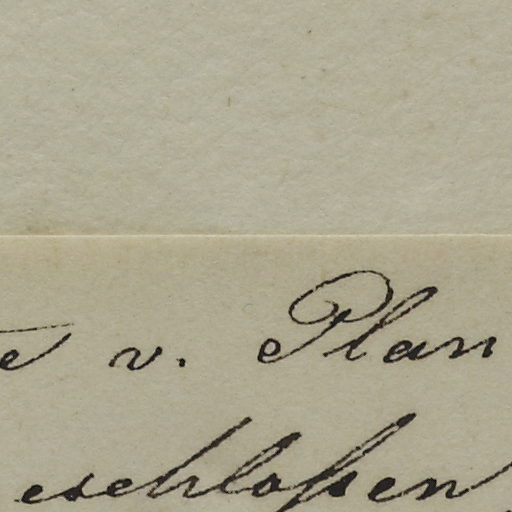 e v. Plan
eschloßen